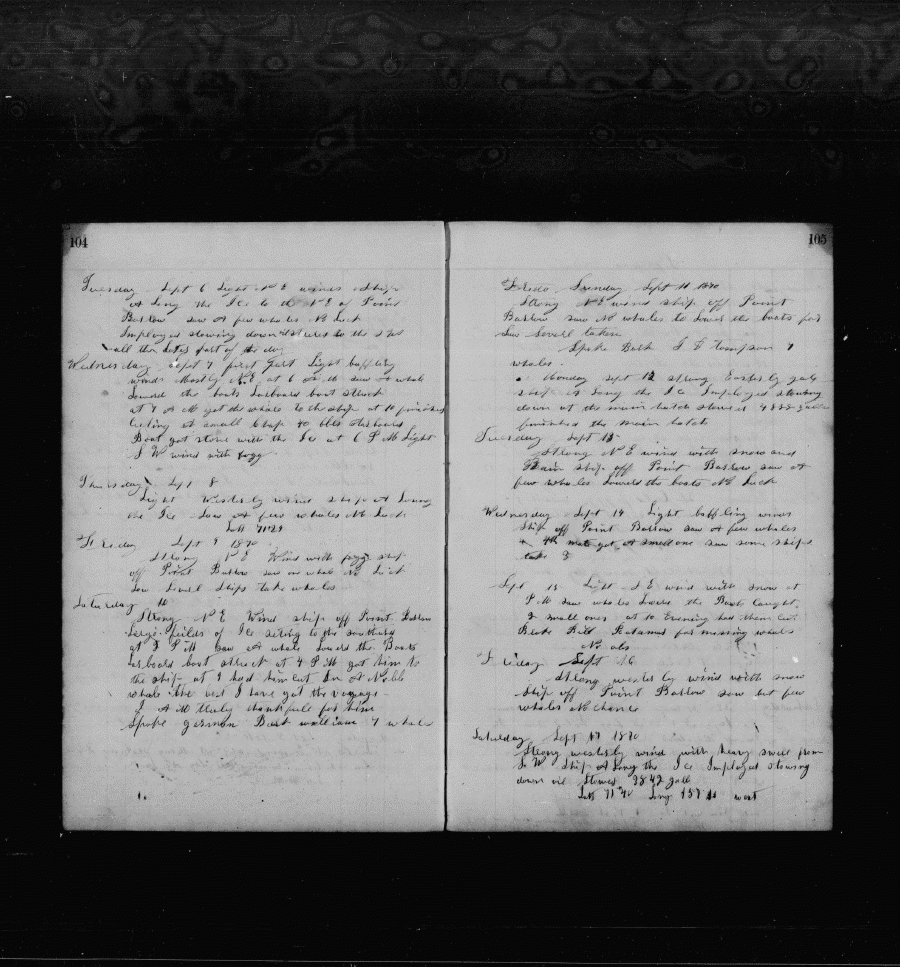 104
Tuesday Sept 6 Light N E winds Ship
A Long the Ice to the N E of Point
Barlow saw A few whales No Luck
Imployed stowing down
all the latter part of the day
Wednesday Sept 7 first Part Light baffling
winds Mostly N.E at 6 A M saw A whale
Lowerd the boats Larboard boat struck
at 7 A M got the whale to the ship at 10 finished
Cutting A small 40 bbls Starboard
Boat got stove with the Ice at 6 P M Light
S W wind with fogg
Thursday Sept 8
Light Westerly wind ship A Long
the Ice Saw A few whales No Luck
Latt 71 29
Friday Sept 9 1870
Strong N E Wind with fogg ship
off Point Barlow saw on whale No Luck
Saw Severl Ships take whales
Saturday 10
Strong N E Wind ship off Point Barlow
Large fields of Ice to the southard
at 3 P M saw A whale Lowerd the Boats
Larboard boat struck at 4 P M got him to
the ship at 9 had him cut In A Noble
whale the best I have got the voyage
I A M truly thankfull for him
Spoke german Bark william 7 whales
105
Sunday Sept 11 1870
Strong N E wind ship off Point
Barlow saw No whales to Lowerd the boats for
Saw Severl taken
Spoke Bark J D tompson 7
whales
Monday Sept 12 strong Easterly gale
ship A Long the Ice Imployed stowing
down at the main hatch stowed galls
finished the main hatch
Tuesday Sept 13
Strong N E wind with snow and
Rain ship off Point Barlow saw A
few whales Lowerd the boats No Luck
Wednesday Sept 14 Light baffling winds
Ship off Point Barlow saw A few whales
4th mate got A small one saw some ships
take 3
Sept 15 Light S E wind with snow at
P M saw whales Lowerd the Boats Caught
2 small ones at 10 Evening had them cut
Kalamas for missing whales
No obs
Friday Sept 16
Strong westerly wind with snow
Ship off Point Barlow saw but few
whales No chance
Saturday Sept 17 1870
Strong westerly wind with heavy swell from
S W Ship A Long the Ice Imployed Stowing
down oil Stowed 3842 galls
Latt 71 40 Long 157 11 west